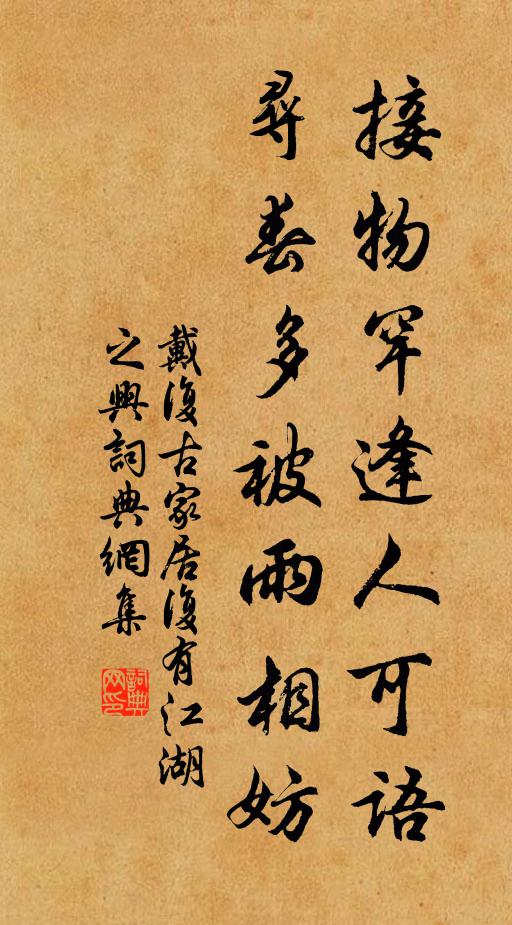 接物罕逢人可語
尋春多被雨相妨
戴復古家居復有江湖
之興詞典網集
詞典
网印